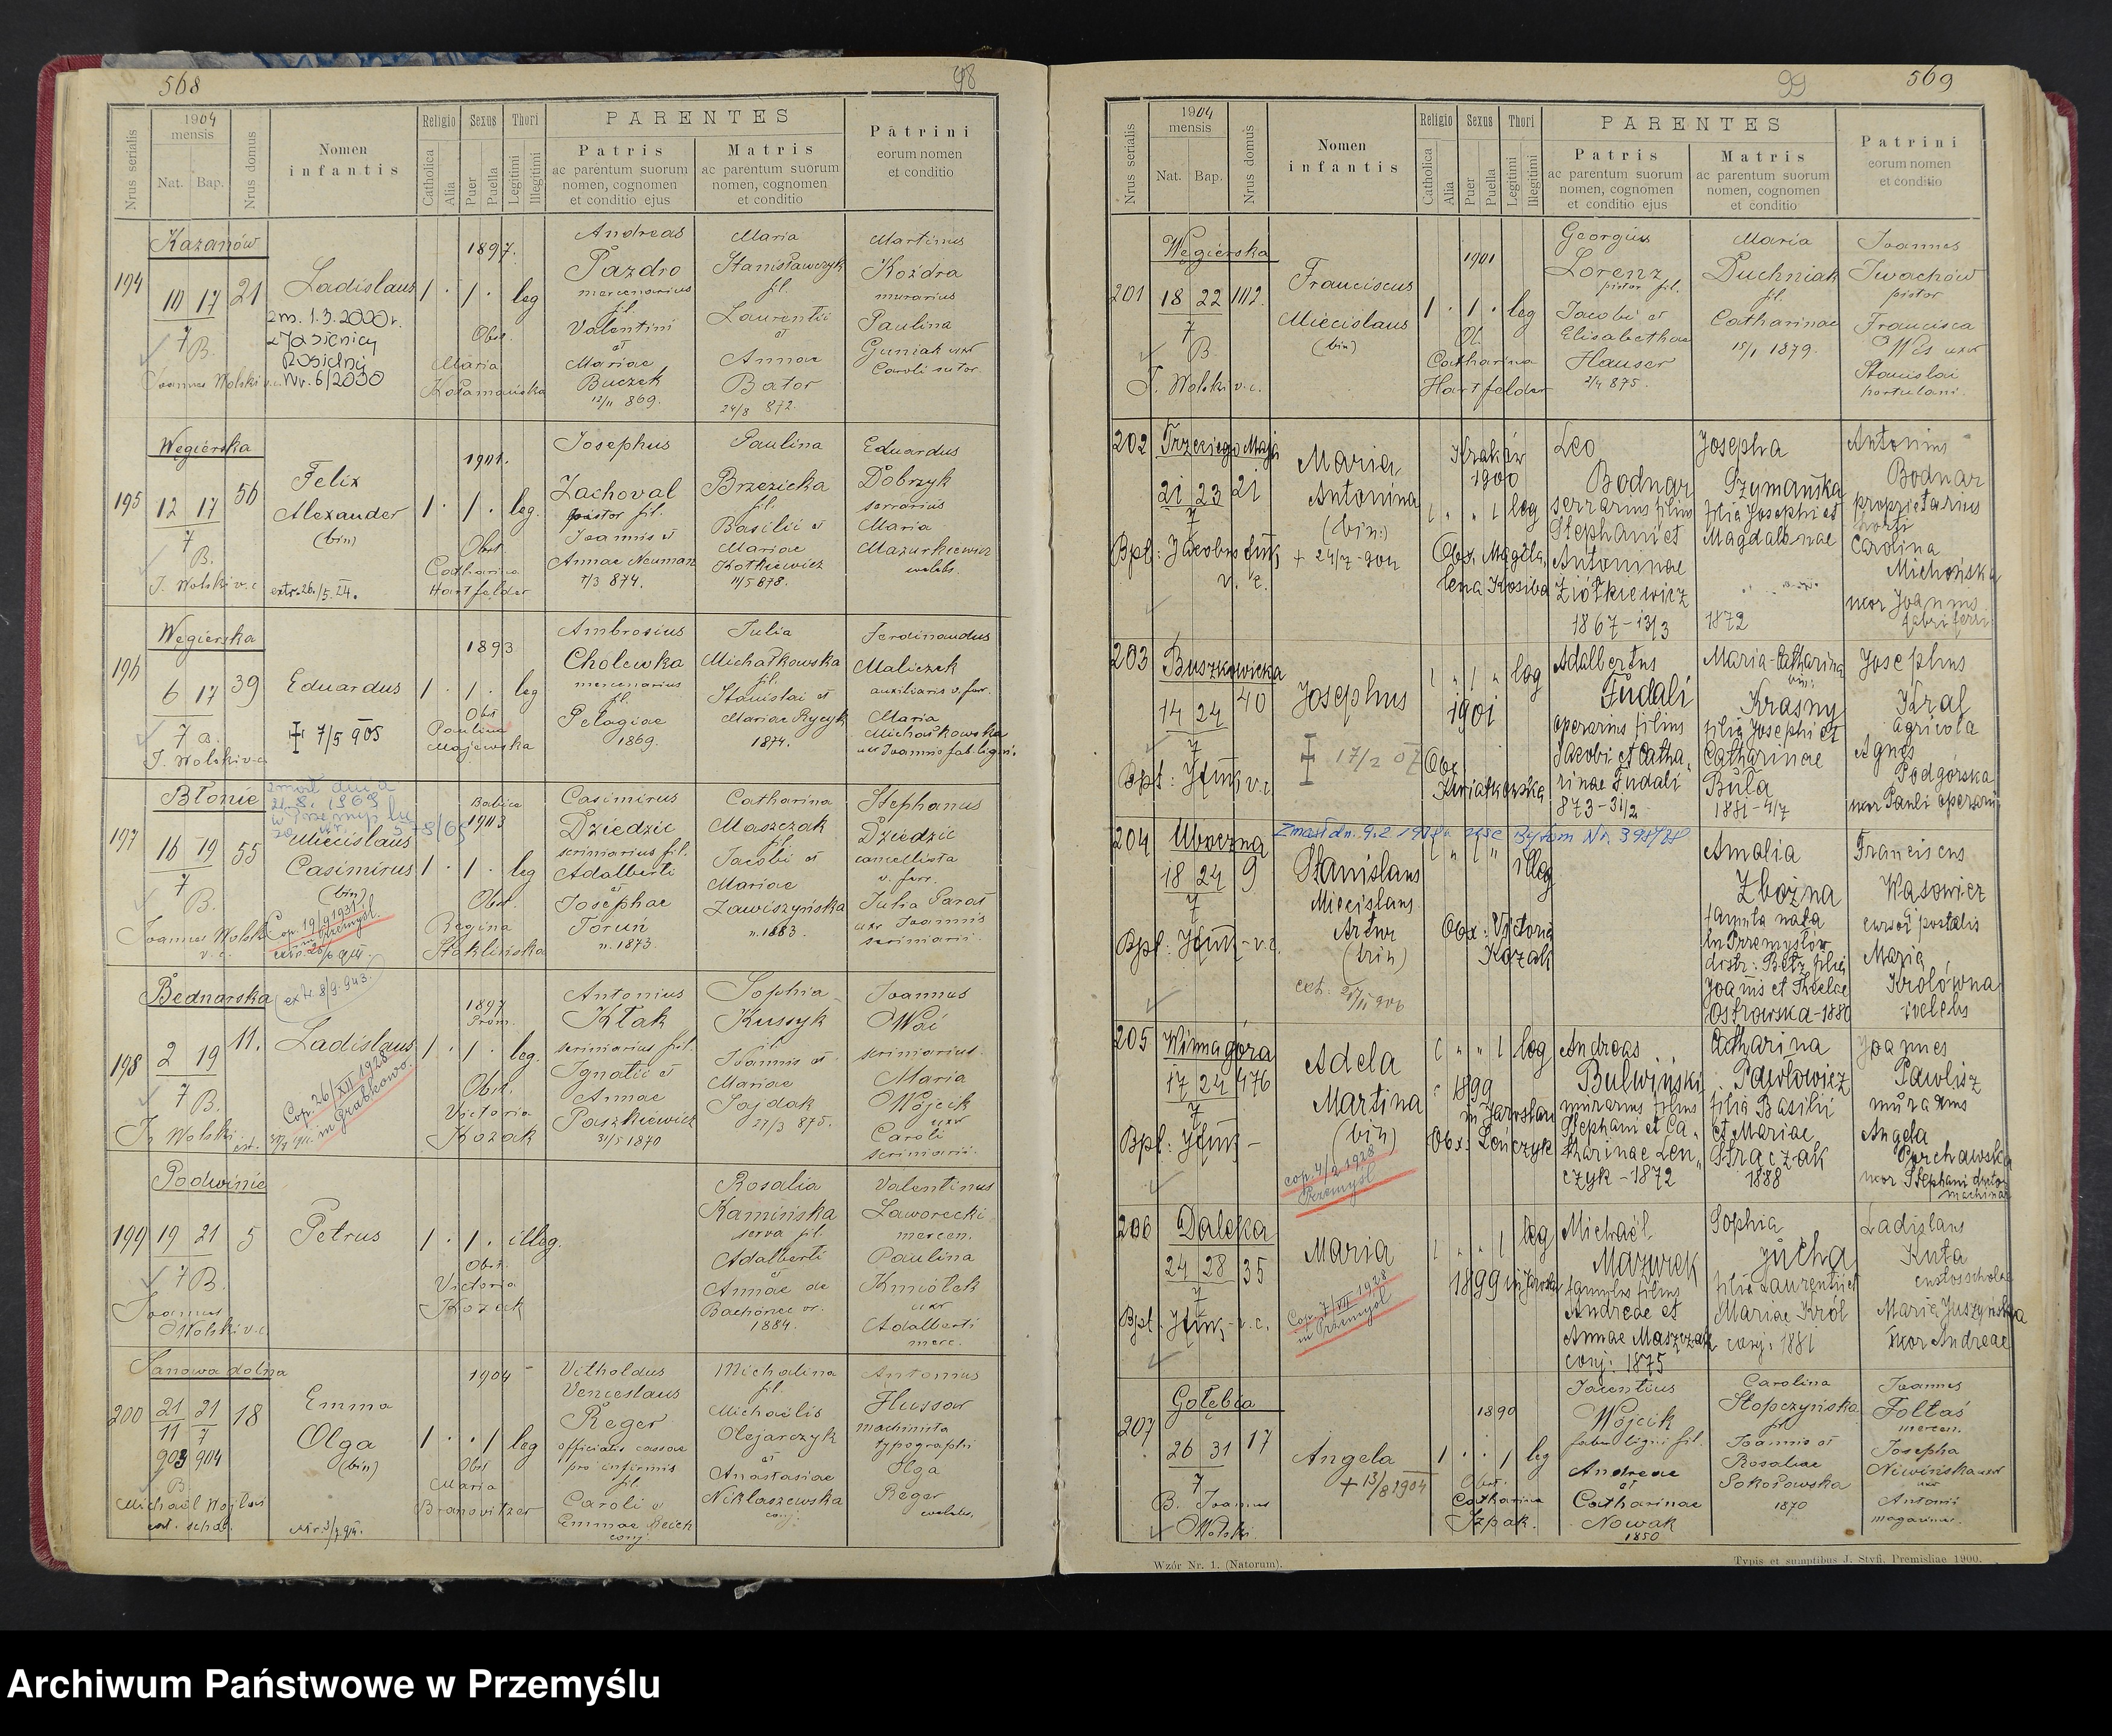 568
98
1904
mensis
Nrus serialis
Nat.
Bap.
Nrus domus
Nomen
infantis
Religio
Sexus
Thori
Catholica
Alia
Puer
Puella
Legitimi
Illegitimi
PARENTES
Patris
ac parentum suorum
nomen, cognomen
et conditio ejus
Matris
ac parentum suorum
nomen, cognomen
et conditio
Patrini
eorum nomen
et conditio
Kazanów
194
10 17 21
7
B.
Joannes Wolski v.c.
Ladislaus
zm. 1.3.2000 r.
w Jasienicy
Rosielnej
Nr. 6/2000
1897.
1 . 1 . leg
Obst.
Maria
Andreas
Pazdro
mercenarius
fil.
Valentini
et
Mariae
Buczek
12/11 869.
Maria
Stanisławczyk
fil.
Laurentii
et
Annae
Bator
24/8 872.
Martinus
Koździa
murarius
Paulina
Guniak uxor
Caroli sutor.
Węgierska
195
12 17 56
7
B.
J. Wolski v.c.
Felix
Alexander
(bin)
extr. 26./5. 24.
1901.
1 . 1 . leg.
Obst.
Catharina
Hartfelder
Josephus
Zachoval
pistor fil.
Joannis et
Annae Neuman
7/3 874.
Paulina
Brzezicka
fil.
Basilii et
Mariae
Kotkiewicz
11/5 878.
Eduardus
Dobrzyk
serrarius
Maria
Mazurkiewicz
coelebs.
Węgierska
196
6 17 39
7 B.
J. Wolski v.c.
Eduardus
7/5 905
1893
1 . 1 . leg
Obst
Paulina
Majewska
Ambrosius
Cholewka
mercenarius
fil.
Pelagiae
1869.
Julia
Michałkowska
fil.
Stanislai et
Mariae Rycyk
1874.
Ferdinandus
Maliczek
auxiliaris v. ferr.
Maria
Michałkowska
uxr Joannis fab. lign.
Błonie
197
16 19 55
7
B.
Joannes Wolski
v. c.
zmarł dnia
21.8.1969
w Przemyślu
Miecislaus
Casimirus
(bin)
Cop. 19/9 1931
in Przemyśl.
Babice
1903
1 . 1 . leg
Obst.
Regina
Steklińska
Casimirus
Dziedzic
scriniarius fil.
Adalberti
et
Josephae
Toruń
n. 1873.
Catharina
Maszczak
fil.
Jacobi et
Mariae
Zawiszyńska
n. 1883.
Stephanus
Dziedzic
cancellista
v. ferr.
Julia Paraś
uxr Joannis
scriniarii.
Bednarska
198
2 19 11.
7 B.
J. Wolski
extr. 8/9. 943.
Ladislaus
Cop. 26/XII 1928
in Grabkowo.
1897
Prom.
1 . 1 . leg.
Obst.
Victoria
Kozak
Antonius
Kłak
scriniarius fil.
Ignatii et
Annae
Paszkiewicz
31/5 1870
Sophia
Kussyk
fil
Joannis et
Mariae
Sojdak
27/3 875.
Joannes
scriniarius.
Maria
Wójcik
uxr
Caroli
scriniarii.
Podwinie
199
19 21 5
7 B.
Joannes
Wolski v.c.
Petrus
1 . 1 . illeg.
Obst.
Victoria
Kozak
Rosalia
Kamińska
serva fil.
Adalberti
et
Annae de
Bachórzec or.
1884.
Valentinus
Jaworecki
mercen.
Paulina
Kmiotek
uxr
Adalberti
merc.
Sanowa dolna
200
21 21 18
11 7
903 904
B
Michaël Wojtaś
Emma
Olga
(bin)
1904
1 . . 1 leg
Obst
Maria
Branowitzer
Vitholdus
Venceslaus
Reger
officialis cassae
pro infirmis
fil.
Caroli et
Emmae Reich
conj.
Michalina
fil.
Michaëlis
Olejarczyk
et
Anastasiae
Niklaszewska
conj:
Antonius
Hussar
machinista
typographi
Olga
Reger
coelebs.
99
569
1904
mensis
Nrus serialis
Nat.
Bap.
Nrus domus
Nomen
infantis
Religio
Sexus
Thori
Catholica
Alia
Puer
Puella
Legitimi
Illegitimi
PARENTES
Patris
ac parentum suorum
nomen, cognomen
et conditio ejus
Matris
ac parentum suorum
nomen, cognomen
et conditio
Patrini
eorum nomen
et conditio
Węgierska
201
18 22 1112.
7
B
J. Wolski v.c.
Franciscus
Miecislaus
(bin)
1901
1 . 1 . leg
Ob.
Catharina
Hartfelder
Georgius
Lorenz
pistor fil.
Jacobi et
Elisabethae
Hauser
2/4 875.
Maria
Puchniak
fil.
Catharinae
15/1 1879.
Joannes
Iwachów
pistor
Francisca
Wis uxor
Stanislai
hortulani.
202
Trzeciego Maja
21 23 21
7
Bpt: Jacobus
v. c.
Maria
Antonina
(bin:)
+ 24/7 - 904
Kraków
1900
1 " " 1 leg
Obx. Magdalena Kosiba
Leo
Bodnar
serrarius filius
Stephani et
Antoninae
Ziółkiewicz
1867-13/3
Josepha
Szymańska
filia Josephi et
Magdalenae
1872
Antonius
Bodnar
proprietarius
horti
Carolina
Michońska
uxor Joannis
fabri ferri
203
Buszkowicka
14 24 40
7
Josephus
17/2 07
1 " 1 " leg
1901
Obx
Kwiatkowska
Adalbertus
Fudali
operarius filius
Jacobi et Catha-
rinae Fudali
873-31/2
Maria-Catharina
bin:
Krasny
filia Josephi et
Catharinae
Buła
1881-4/7
Josephus
Kral
agricola
Agnes
Podgórska
uxor Pauli operarii
204
Uboczna
18 24 9
7
Zmarł dn. 9.2.1978 r. Bytom Nr. 398/78
Stanislaus
Miecislaus
Artur
(trin)
1 " 1 " illeg
Obx: Victoria
Kozak
Amalia
Zbożna
famula nata
in Przemysłów
distr: Bełz filia
Joannis et Theclae
Ostrowska-1880
Franciscus
Wąsowicz
cursor postalis
Maria
Królówna
coelebs
205
Winna góra
17 24 476
7
Adela
Martina
(bin)
cop. 4/2 1928
Przemyśl
1 " " 1 leg
1899
in Jarosław
Obx: Łończyk
Andreas
Bulwiński
murarius filius
Stephani et Ca-
tharinae Len-
czyk - 1872
Catharina
Pawłowicz
filia Basilii
et Mariae
Strączak
1888
Joannes
Pawlisz
murarius
Angela
uxor Stephani
206
Daleka
24 28 35
7
Maria
Cop. 7/VII 1928
in Przemyśl
1 " " 1 leg
1899 in
Michaël
Mazurek
famulus filius
Andreae et
Annae Maszczak
conj: 1875
Sophia
Jucha
filia Laurentii et
Mariae Król
conj: 1881
Ladislaus
Kuta
custos scholae
Maria Juszyńska
uxor Andreae
Gołębia
207
26 31 17
7
B. Joannes
Wolski
Angela
+ 13/8 1904
1890
1 . . 1 leg
Obst.
Catharina
Szpak.
Wójcik
faber ligni fil.
Andreae
et
Catharinae
Nowak
1850
Carolina
Stopczyńska
fil
Joannis et
Rosaliae
Sokołowska
1870
Joannes
Foltaś
mercen.
Josepha
Niwińska
uxr
Antonii
magazinar.
Wzór Nr. 1. (Natorum).
Typis et sumptibus J. Styfi, Premisliae 1900.
Archiwum Państwowe w Przemyślu